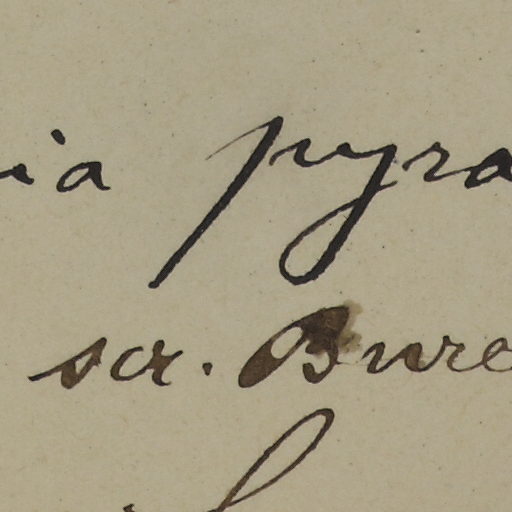 ia pyra
scr. Bure